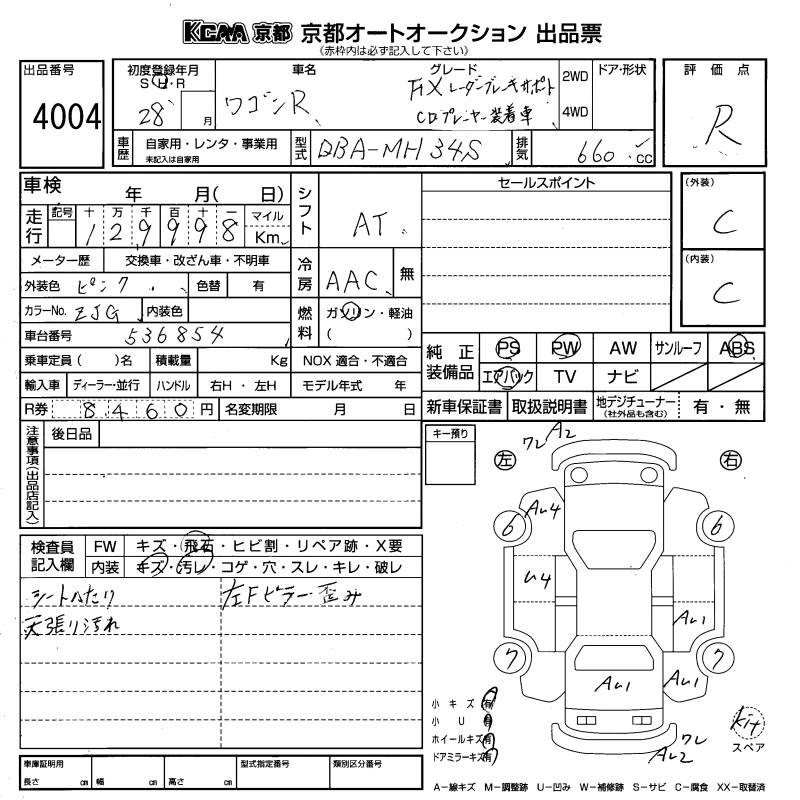 KCAA 京都 京都オートオークション 出品票
(赤枠内は必ず記入して下さい)
出品番号
4004
初度登録年月
S・H・R
28 月
車名
ワゴンR
グレード
FX レーダーブレーキサポート
CDプレーヤー装着車
2WD
4WD
ドア・形状
評価点
R
車歴
自家用・レンタ・事業用
未記入は自家用
型式
DBA-MH34S
排気
660 cc
車検 年 月( 日)
走行
記号 十 万 千 百 十 一 マイル
1 2 9 9 9 8 Km
メーター歴 交換車・改ざん車・不明車
外装色 ピンク 色替 有
カラーNo. ZJG 内装色
車台番号 536854
乗車定員( )名 積載量 Kg
輸入車 ディーラー・並行 ハンドル 右H・左H
R券 8460円 名変期限 月 日
シフト AT
冷房 AAC 無
燃料 ガソリン・軽油
( )
NOX 適合・不適合
モデル年式 年
セールスポイント
(外装)
C
(内装)
C
純正装備品
PS PW AW サンルーフ ABS
エアバック TV ナビ
新車保証書 取扱説明書 地デジチューナー(社外品も含む) 有・無
注意事項(出品店記入)
後日品
キー預り
検査員記入欄
FW キズ・飛石・ヒビ割・リペア跡・X要
内装 キズ・汚レ・コゲ・穴・スレ・キレ・破レ
シートへたり
天張り汚れ
左Fピラー歪み
ワレ A2
左 右
6 AU4 6
U4
AU1
7 AU1 AU1 7
ワレ
AU2
kit
スペア
小キズ 有
小U 有
ホイールキズ 有
ドアミラーキズ 有
車庫証明用
長さ cm 幅 cm 高さ cm
型式指定番号
類別区分番号
A−線キズ M−調整跡 U−凹み W−補修跡 S−サビ C−腐食 XX−取替済